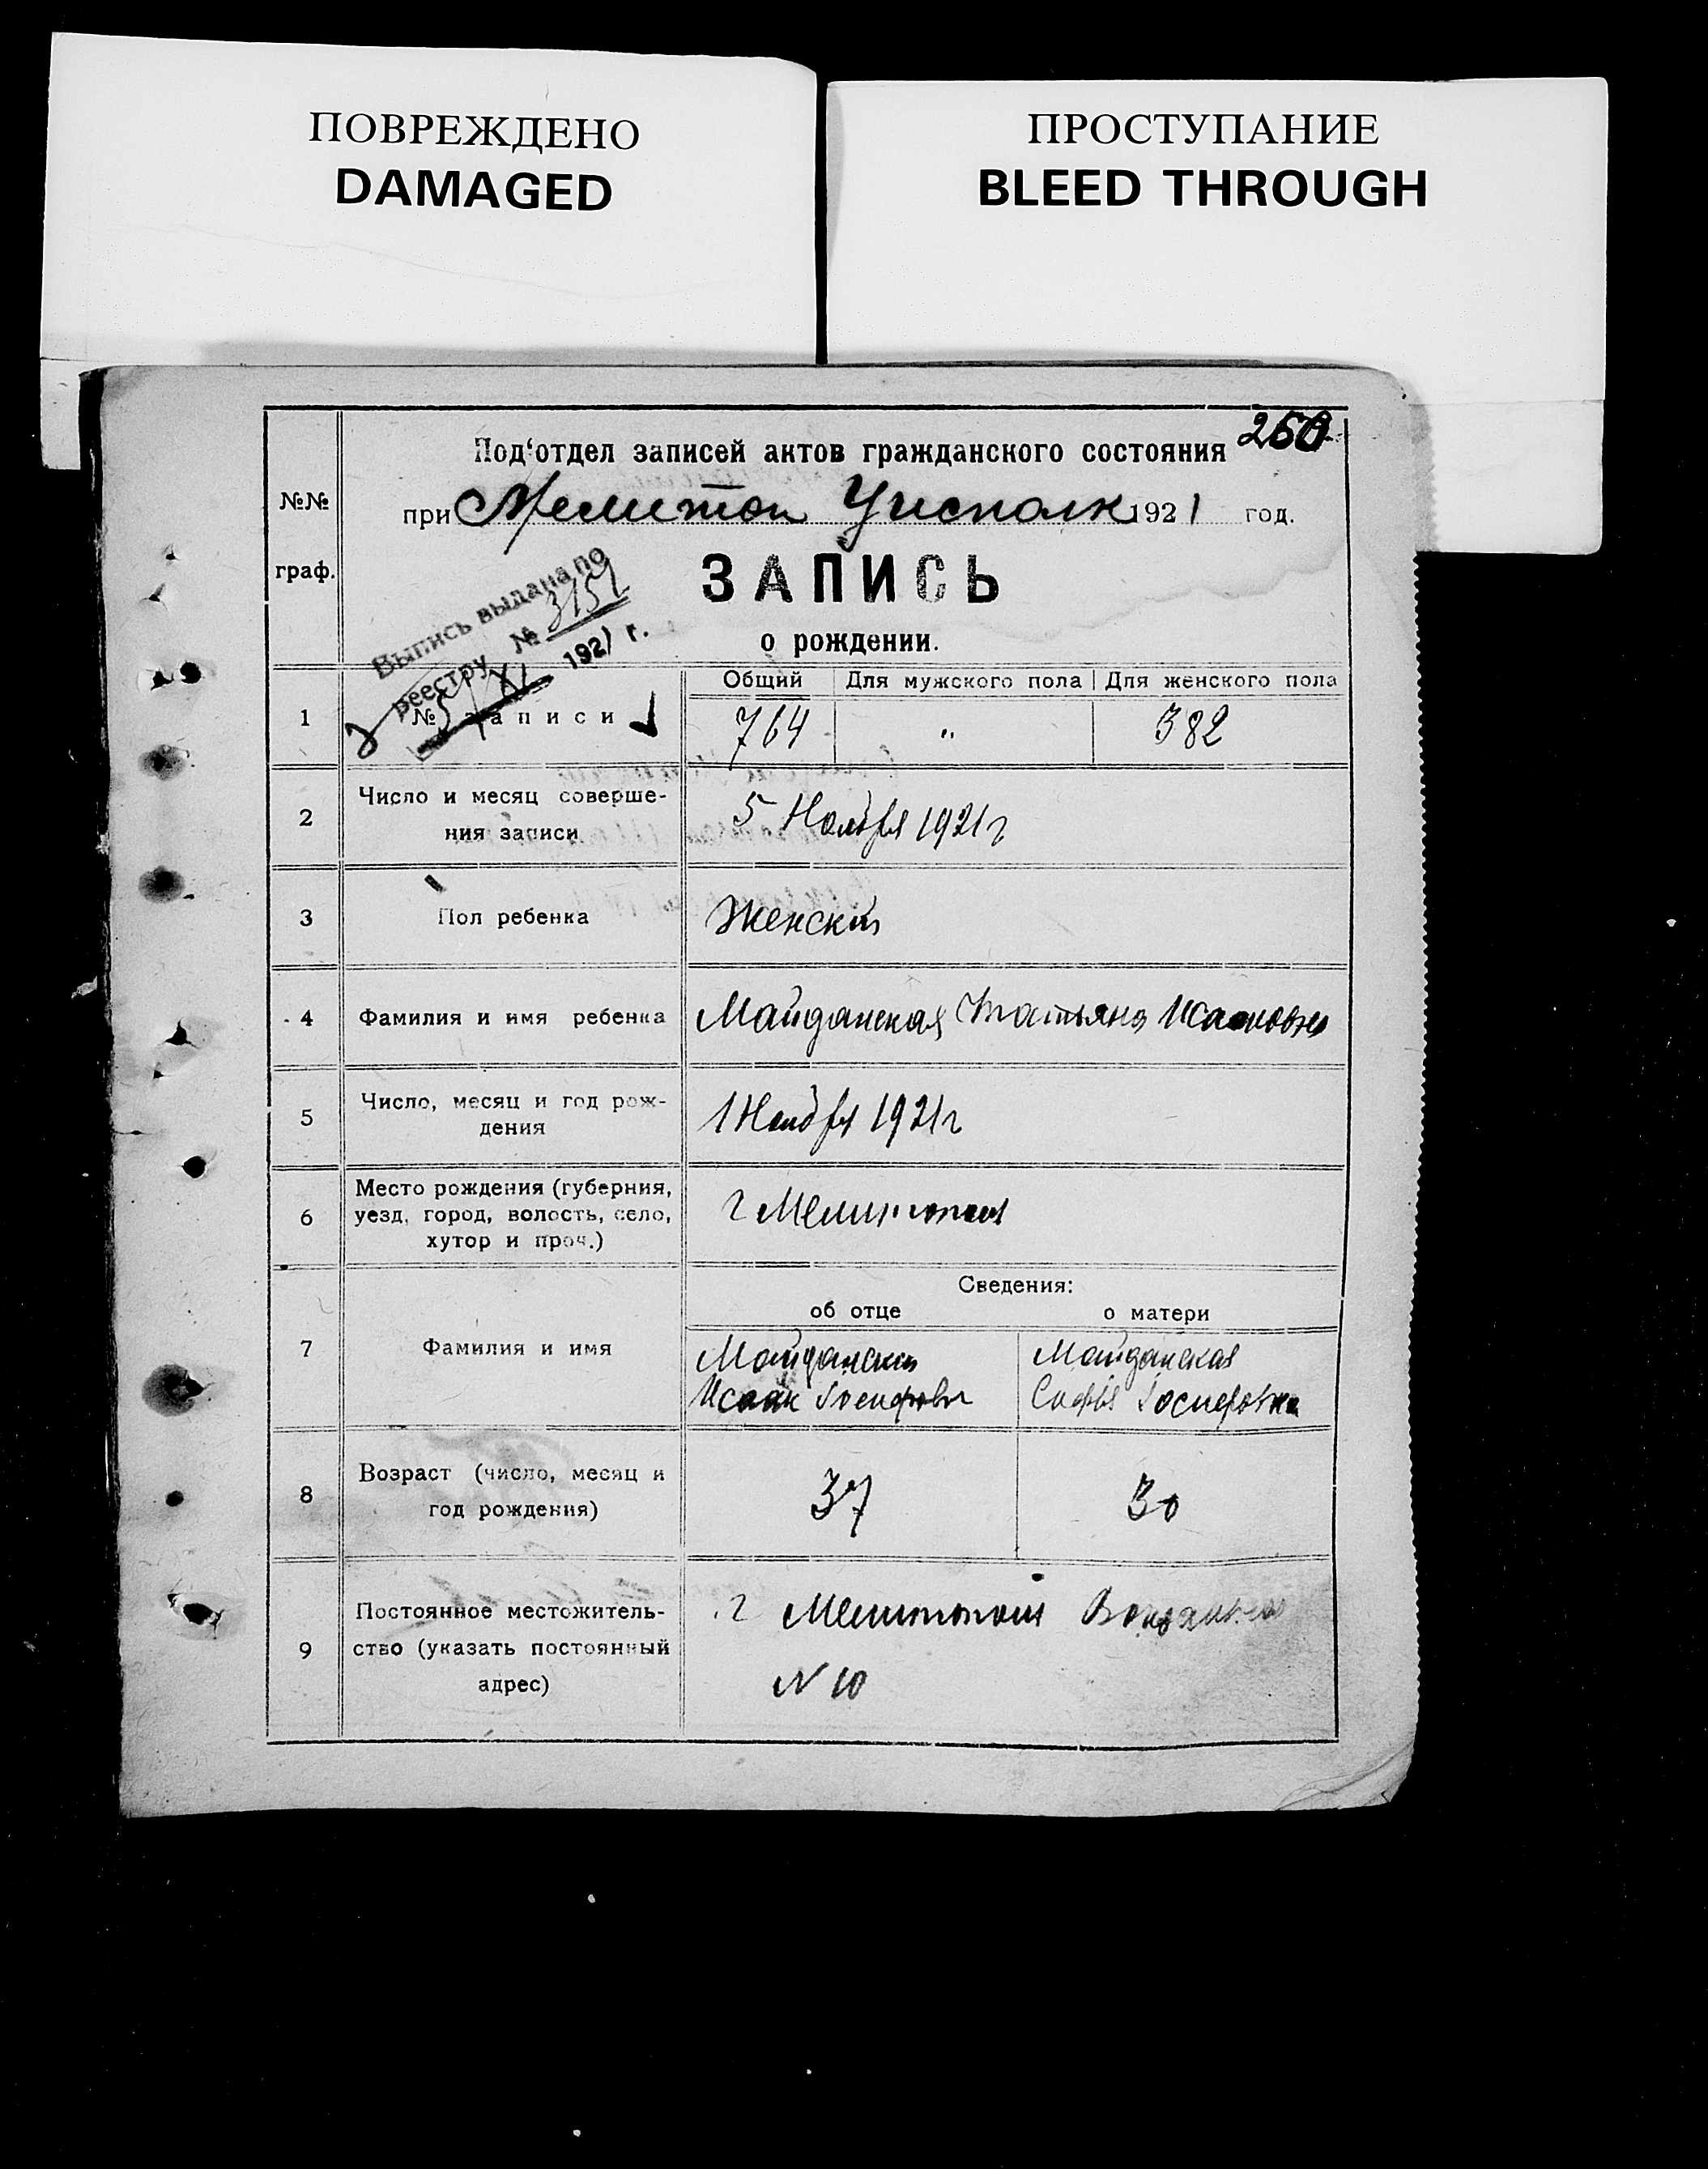 ПОВРЕЖДЕНО
DAMAGED
ПРОСТУПАНИЕ
BLEED THROUGH
250
Под‘отдел записей актов гражданского состояния
при Мелитоп Уисполк 1921 год.
№№
граф.
ЗАПИСЬ
о рождении.
Выпись выдана по
реестру № 3151
5/XI 1921 г.
Общий Для мужского пола Для женского пола
1 № записи 764 " 382
2 Число и месяц соверше-
ния записи
5 Ноября 1921 г
3 Пол ребенка Женский
4 Фамилия и имя ребенка Майданская Татьяна Исаковна
5 Число, месяц и год рож-
дения
1 Ноября 1921 г
6 Место рождения (губерния,
уезд, город, волость, село,
хутор и проч.)
г Мелитополь
Сведения:
об отце о матери
7 Фамилия и имя
Майданский
Исаак Іосифович
Майданская
Софья Іосифовна
8 Возраст (число, месяц и
год рождения)
37 30
9 Постоянное местожитель-
ство (указать постоянный
адрес)
г Мелитополь
N 10